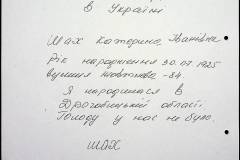 в Україні
Мах Катерина Іванівна
Рік народження 30.07.1925
вулиця Жовтнева -84.
Я народилася в
Дрогобицькій області.
Голоду у нас не було.
Мах